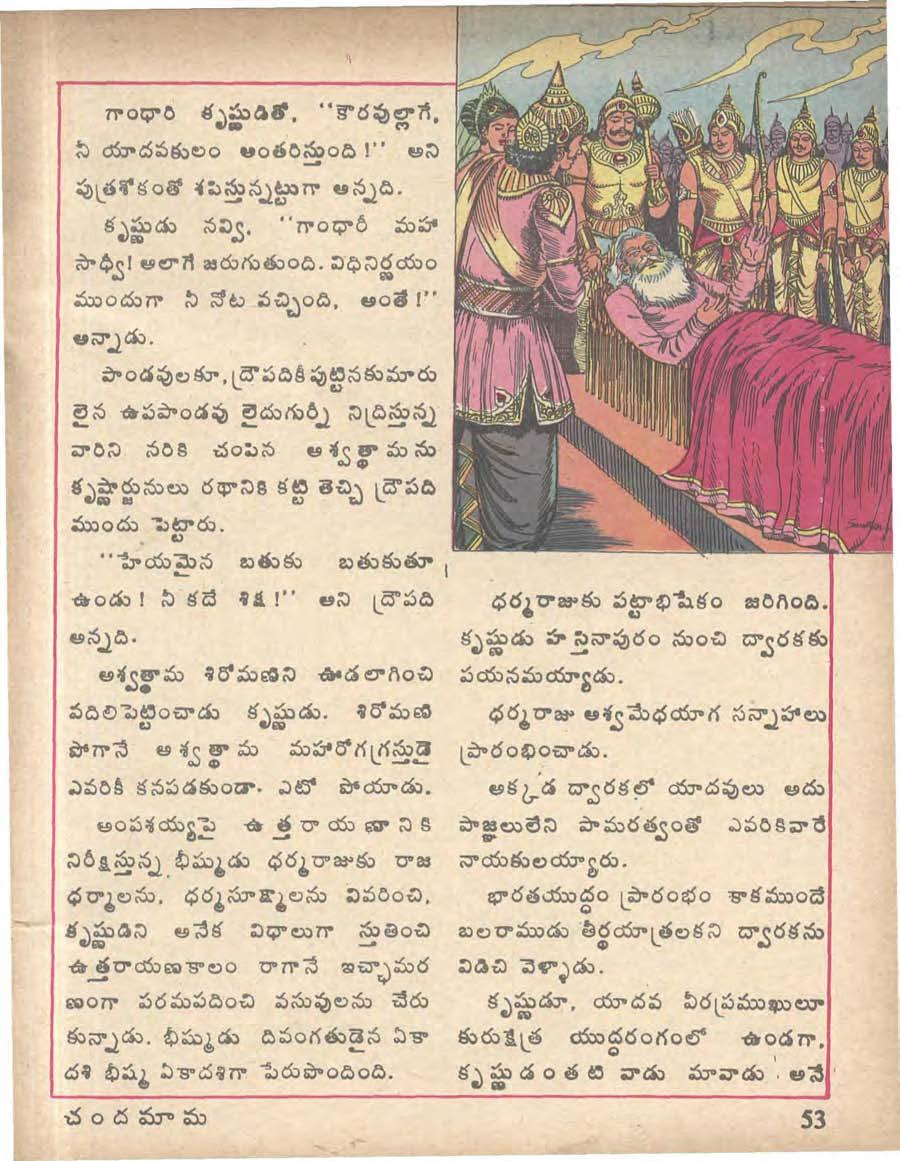 గాంధారి కృష్ణుడితో, ‘‘కౌరవుల్లాగే,
నీ యాదవకులం అంతరిస్తుంది !’’ అని
పుత్రశోకంతో శపిస్తున్నట్టుగా అన్నది.
కృష్ణుడు నవ్వి, ‘‘గాంధారీ మహా
సాధ్వీ! అలాగే జరుగుతుంది. విధినిర్ణయం
ముందుగా నీ నోట వచ్చింది, అంతే !’’
అన్నాడు.
పాండవులకూ, ద్రౌపదికీ పుట్టినకుమారు
లైన ఉపపాండవు లైదుగుర్నీ నిద్రిస్తున్న
వారిని నరికి చంపిన అశ్వత్థామను
కృష్ణార్జునులు రథానికి కట్టి తెచ్చి ద్రౌపది
ముందు పెట్టారు.
‘‘హేయమైన బతుకు బతుకుతూ
ఉండు ! నీ కదే శిక్ష !’’ అని ద్రౌపది
అన్నది.
అశ్వత్థామ శిరోమణిని ఊడలాగించి
వదిలిపెట్టించాడు కృష్ణుడు. శిరోమణి
పోగానే అశ్వత్థామ మహారోగగ్రస్తుడై
ఎవరికీ కనపడకుండా. ఎటో పోయాడు.
అంపశయ్యపై ఉత్తరాయణానికి
నిరీక్షిస్తున్న భీష్ముడు ధర్మరాజుకు రాజ
ధర్మాలను, ధర్మసూక్ష్మాలను వివరించి,
కృష్ణుడిని అనేక విధాలుగా స్తుతించి
ఉత్తరాయణకాలం రాగానే ఇచ్ఛామర
ణంగా పరమపదించి వసువులను చేరు
కున్నాడు. భీష్ముడు దివంగతుడైన ఏకా
దశి భీష్మ ఏకాదశిగా పేరుపొందింది.
ధర్మరాజుకు పట్టాభిషేకం జరిగింది.
కృష్ణుడు హస్తినాపురం నుంచి ద్వారకకు
పయనమయ్యాడు.
ధర్మరాజు అశ్వమేధయాగ సన్నాహాలు
ప్రారంభించాడు.
అక్కడ ద్వారకలో యాదవులు అదు
పాజ్ఞలులేని పామరత్వంతో ఎవరికివారే
నాయకులయ్యారు.
భారతయుద్ధం ప్రారంభం కాకముందే
బలరాముడు తీర్థయాత్రలకని ద్వారకను
విడిచి వెళ్ళాడు.
కృష్ణుడూ, యాదవ వీరప్రముఖులూ
కురుక్షేత్ర యుద్ధరంగంలో ఉండగా,
కృష్ణుడంతటి వాడు మావాడు అనే
చందమామ
53